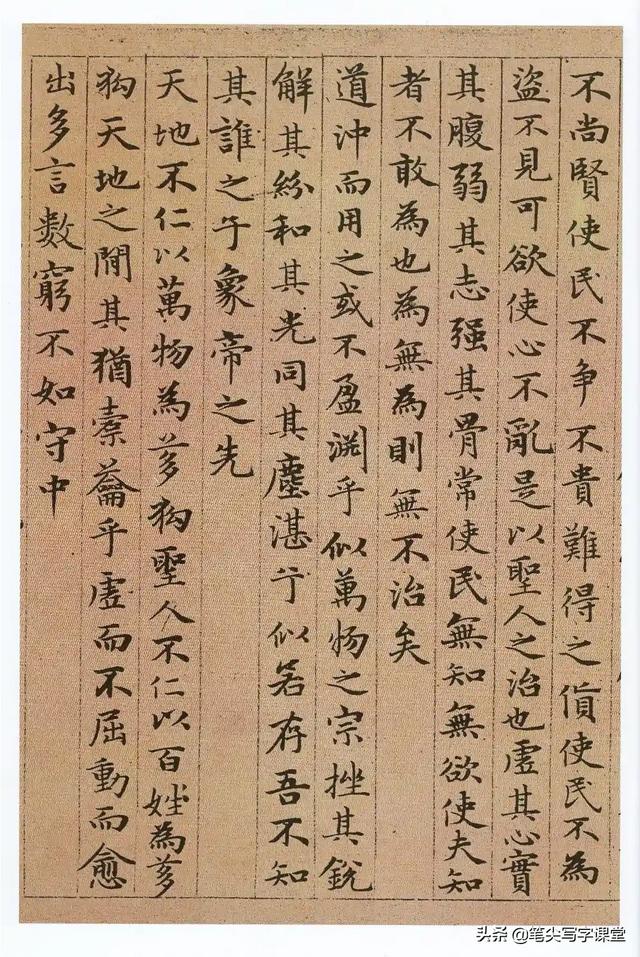 不尚賢使民不爭不貴難得之貨使民不為
盜不見可欲使心不亂是以聖人之治也虛其心實
其腹弱其志强其骨常使民無知無欲使夫知
者不敢為也為無為則無不治矣
道沖而用之或不盈淵乎似萬物之宗挫其銳
解其紛和其光同其塵湛兮似若存吾不知
其誰之子象帝之先
天地不仁以萬物為芻狗聖人不仁以百姓為芻
狗天地之間其猶橐籥乎虛而不屈動而愈
出多言數窮不如守中
头条 @笔尖写字课堂